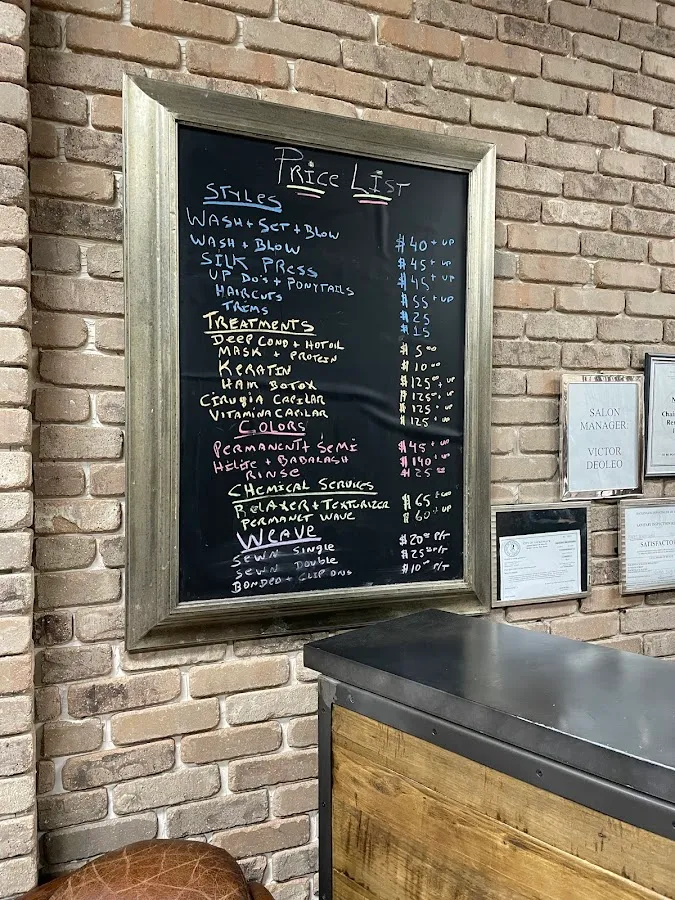 PRICE LIST
STYLES
WASH + SET + BLOW $40 + UP
WASH + BLOW $45 + UP
SILK PRESS $45 + UP
UP DO'S + PONYTAILS $55 + UP
HAIRCUTS $25
TRIMS $15
TREATMENTS
DEEP COND + HOT OIL $5 00
MASK + PROTEIN $10 00
KERATIN $125 00 + UP
HAIR BOTOX $125 00 + UP
CIRUGIA CAPILAR $125 + UP
VITAMINA CAPILAR $125 + UP
COLORS
PERMANENT + SEMI $45 + UP
HILITE + BABALASH $140 + UP
RINSE $25 00
CHEMICAL SERVICES
RELAXER + TEXTURIZER $65
PERMANET WAVE $60 + UP
WEAVE
SEWN SINGLE $20 00 P/T
SEWN DOUBLE $25 00 P/T
BONDED + CLIP ONS $10 00 P/T
SALON
MANAGER:
VICTOR
DEOLEO